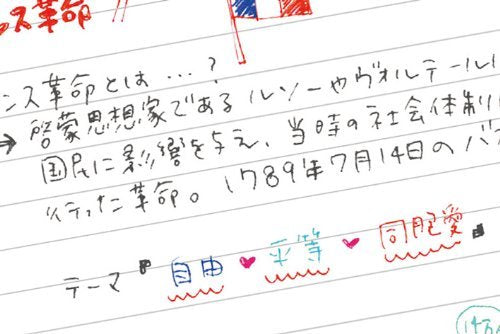 ス革命
ンス革命とは…?
→ 啓蒙思想家であるルソーやヴォルテール
国民に影響を与え、当時の社会体制
行った革命。1789年7月14日のバ
テーマ" 自由 ♥ 平等 ♥ 同胞愛"